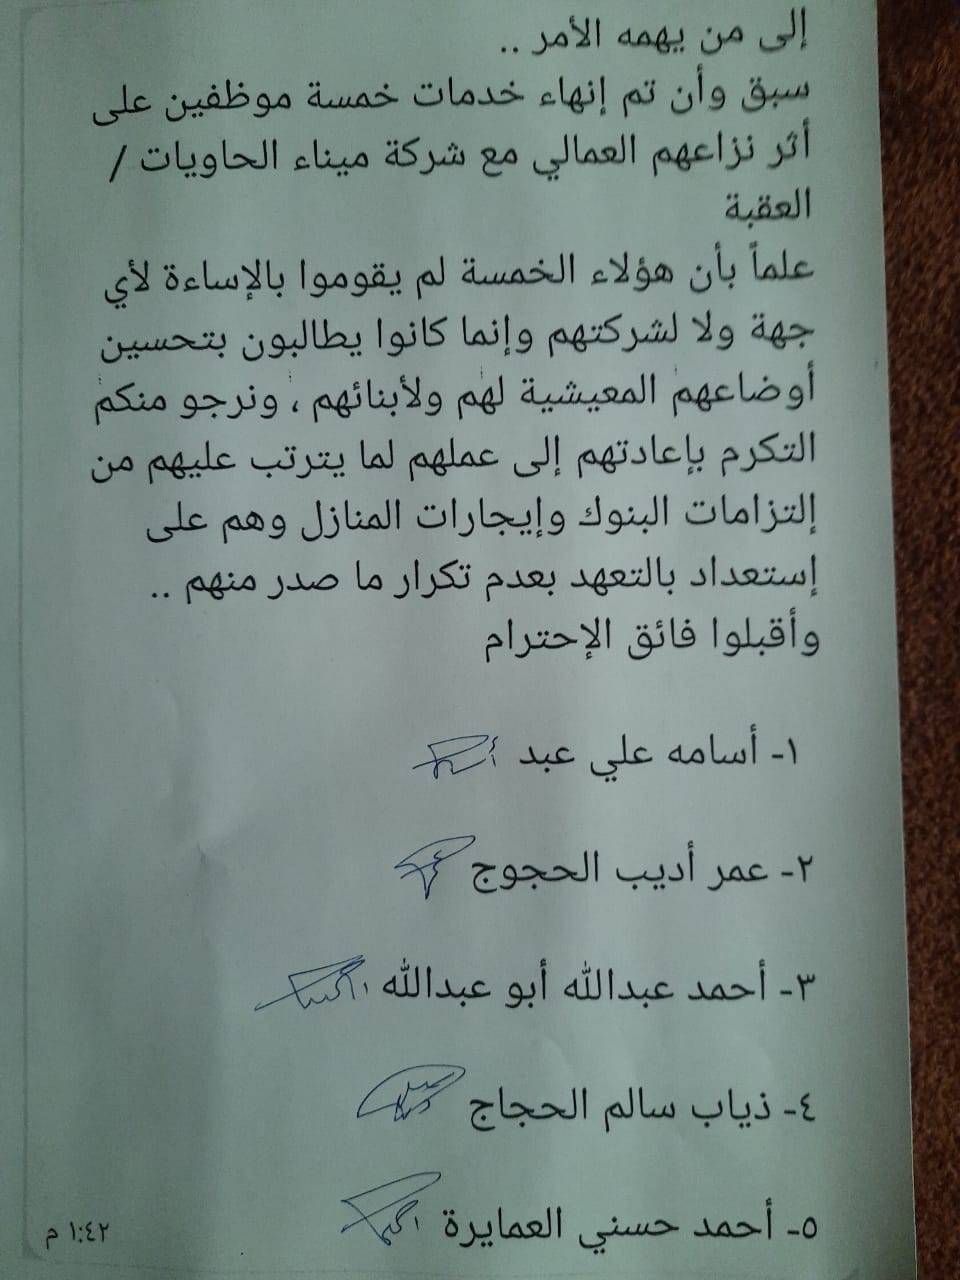 إلى من يهمه الأمر ..
سبق وأن تم إنهاء خدمات خمسة موظفين على
أثر نزاعهم العمالي مع شركة ميناء الحاويات /
العقبة
علماً بأن هؤلاء الخمسة لم يقوموا بالإساءة لأي
جهة ولا لشركتهم وإنما كانوا يطالبون بتحسين
أوضاعهم المعيشية لهم ولأبنائهم ، ونرجو منكم
التكرم بإعادتهم إلى عملهم لما يترتب عليهم من
إلتزامات البنوك وإيجارات المنازل وهم على
إستعداد بالتعهد بعدم تكرار ما صدر منهم ..
وأقبلوا فائق الإحترام
١- أسامه علي عبد
٢- عمر أديب الحجوج
٣- أحمد عبدالله أبو عبدالله
٤- ذياب سالم الحجاج
٥- أحمد حسني العمايرة
١:٤٢ م